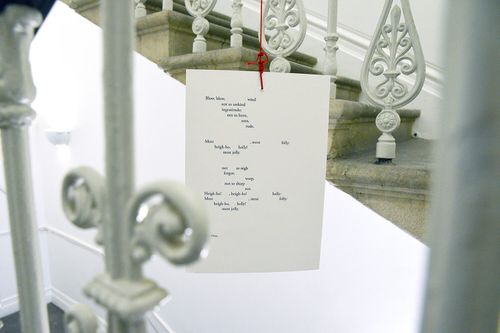 Blow, blow, wind
not so unkind
ingratitude;
not so keen,
seen,
rude.
Most , most folly:
heigh-ho, holly!
most jolly.
not so nigh
forgot:
warp,
not so sharp
not.
Heigh-ho! , heigh-ho! holly:
Most , most folly:
heigh-ho, holly!
most jolly.